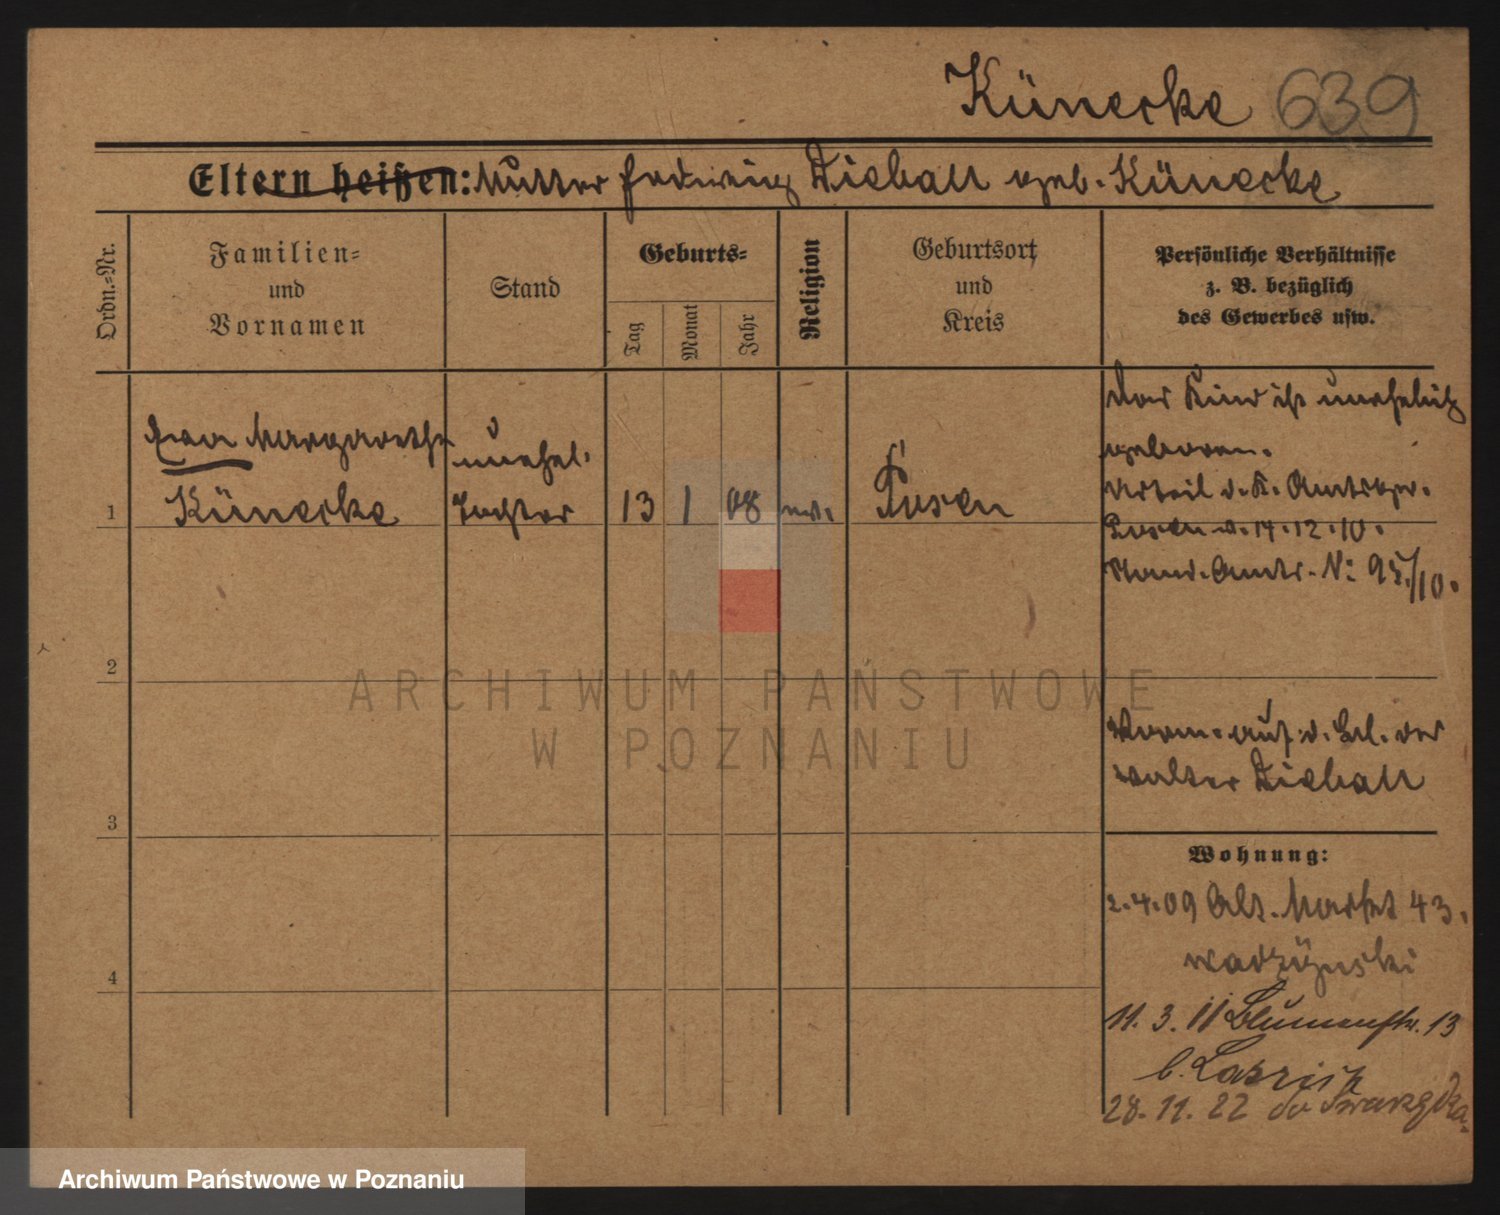 Künecke 639
Eltern heißen: Mutter Hedwig Dieball geb. Künecke
Ordn.-Nr.
Familien-
und
Vornamen
Stand
Geburts-
Tag
Monat
Jahr
Religion
Geburtsort
und
Kreis
Persönliche Verhältnisse
z. B. bezüglich
des Gewerbes usw.
1
Eva Margarethe
Künecke
unehel.
Tochter
13
1
08
ev.
Posen
Das Kind ist unehelich
geboren.
Urteil d. K. Amtsger.
Posen v. 14.12.10.
Stand. Amts. N: 95/10.
2
auf d. der
Dieball
3
Wohnung:
2.4.09 Alt. Markt 43.
4
11. 3. 11 Blumenstr. 13
b.
28. 11. 22 do Swarzędza
ARCHIWUM PAŃSTWOWE
W POZNANIU
Archiwum Państwowe w Poznaniu